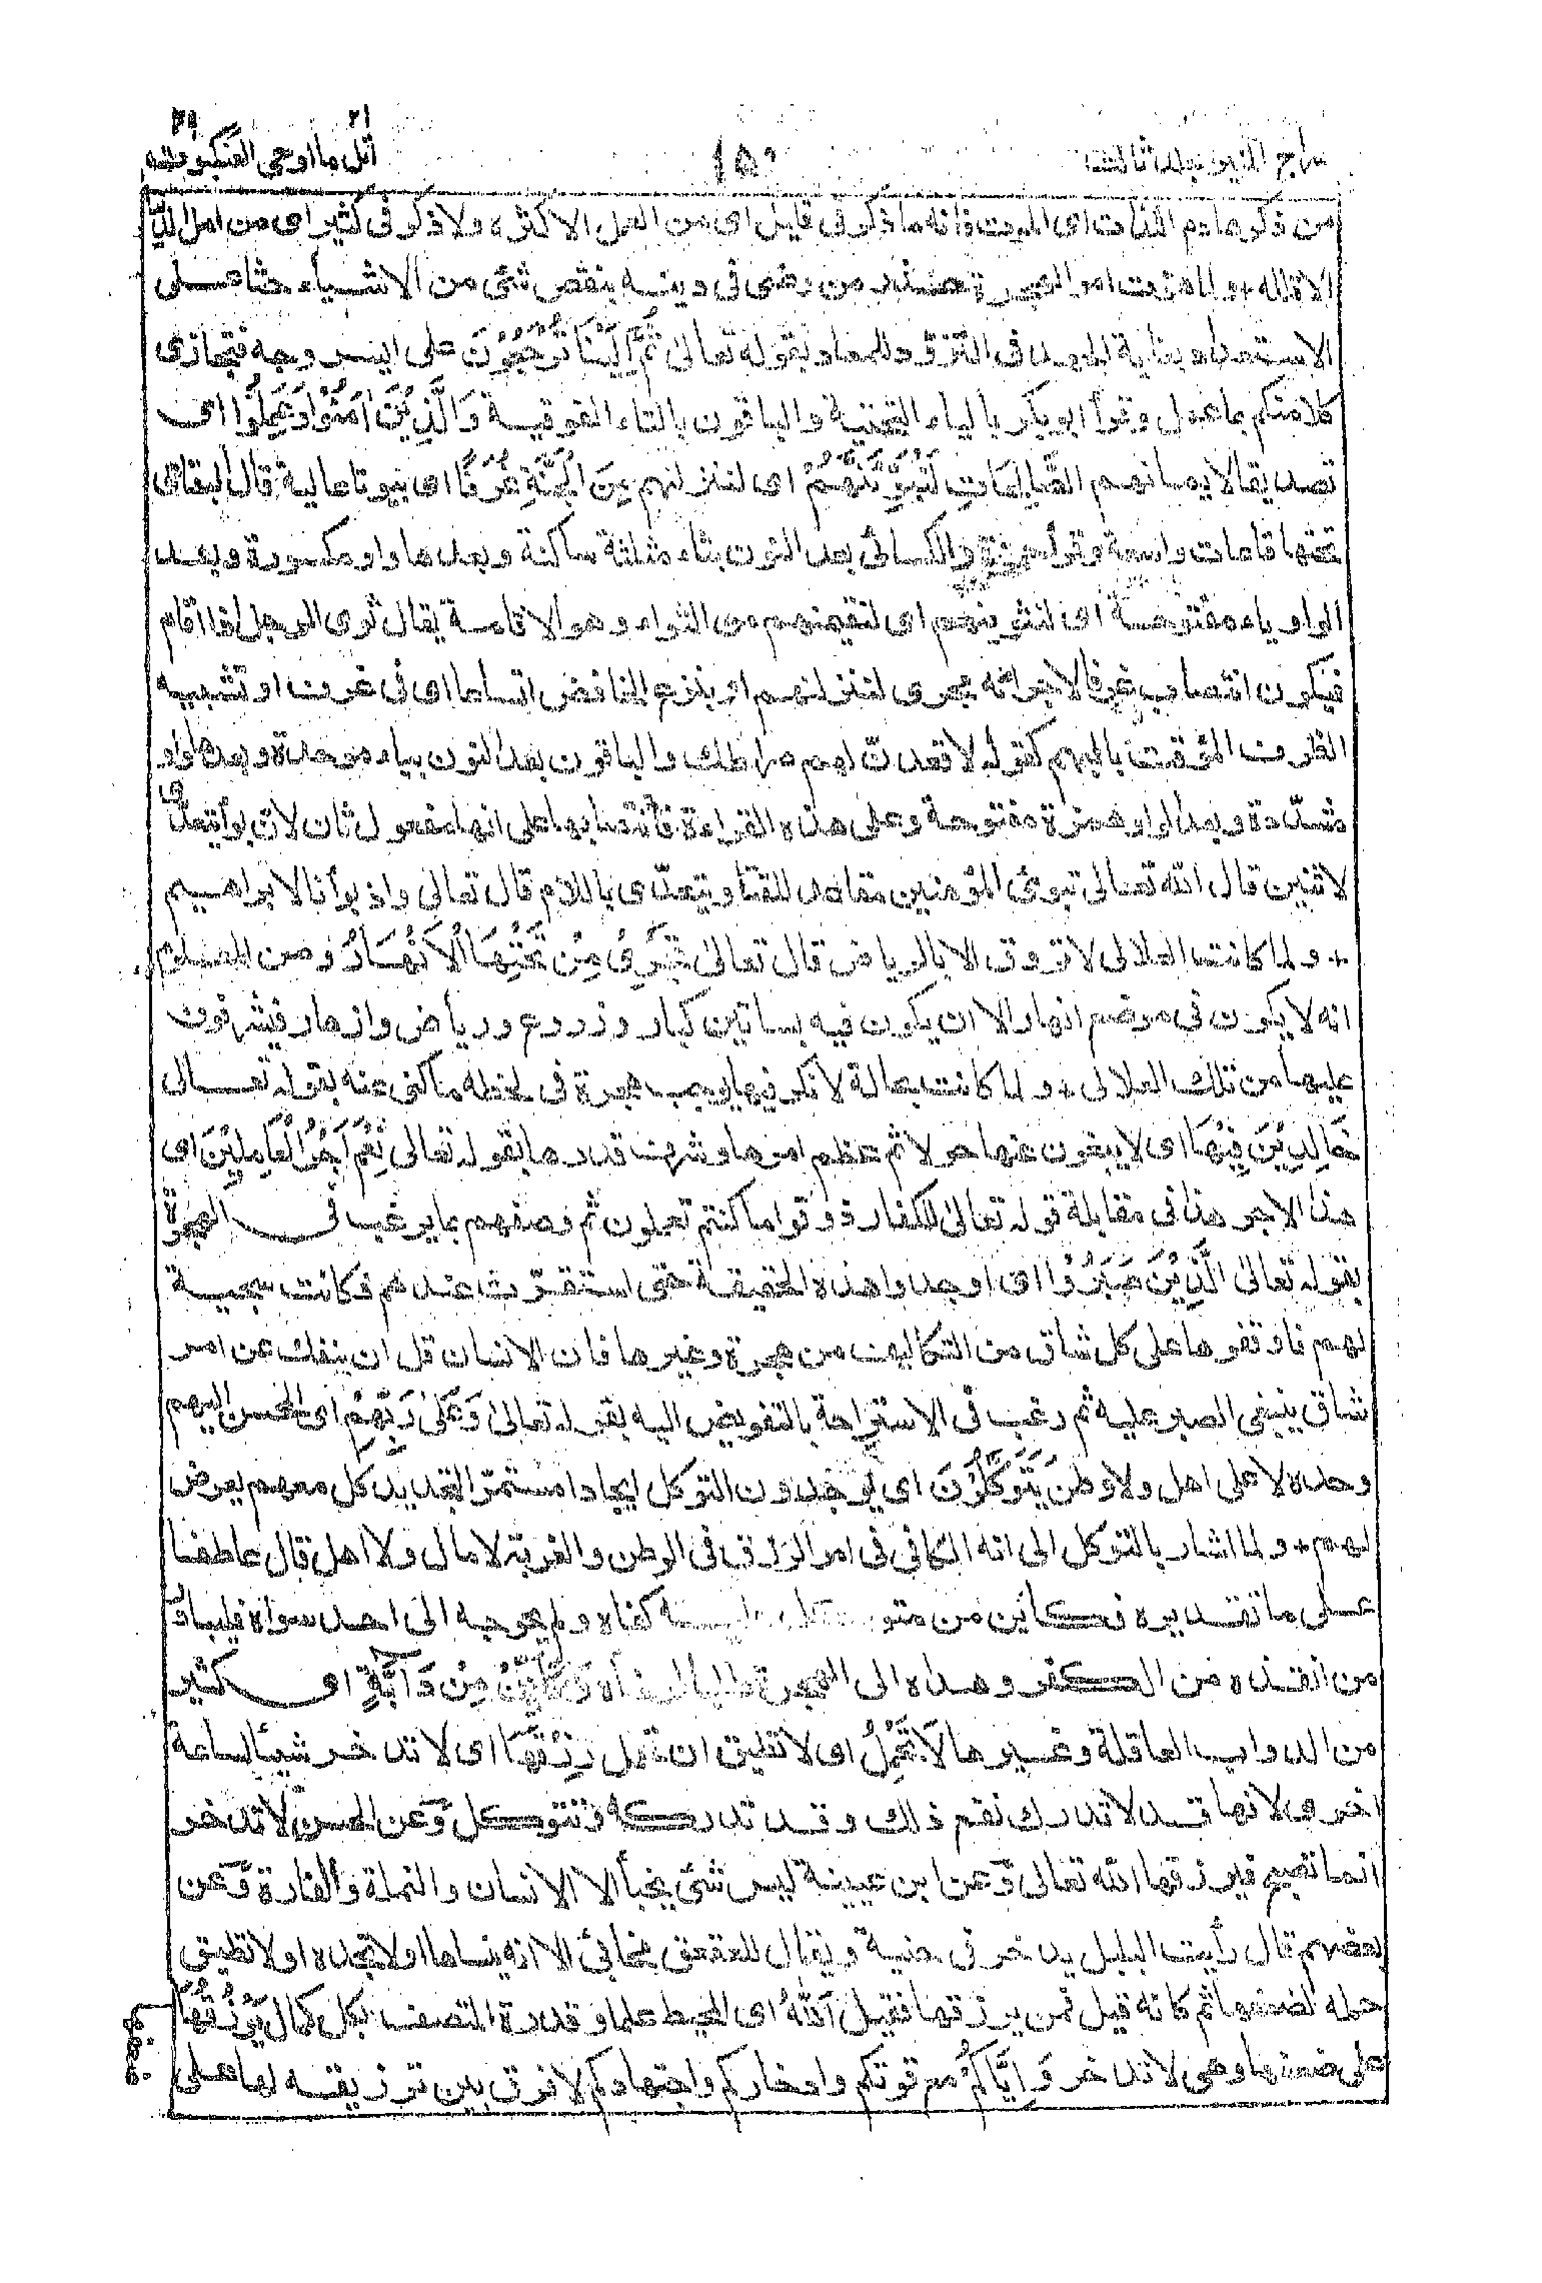 سراج المنير جلد ثالث
١٥٠
اتل ما اوحى ٢١ العنكبوت ٢٩
من ذكر هاذم اللذات اى الموت فانه ما ذكر فى قليل اى من العمل الا كثره ولا ذكر فى كثير اى من امل الدنيا
الا قلله + ولما هونت امر الهجرة حذر من رضى فى دينه بنقص شئ من الاشياء حثا على
الاستعداد بغاية الجهد فى التزود للمعاد بقوله تعالىٰ ثُمَّ اِلَيْنَا تُرْجَعُوْنَ على ايسر وجه فنجازى
كلا منكم بما عمل وقرأ ابو بكر بالياء التحتية والباقون بالتاء الفوقية وَالَّذِيْنَ اٰمَنُوْا وَعَمِلُوا اى
تصديقا لايمانهم الصَّالِحَاتِ لَنُبَوِّئَنَّهُمْ اى لننزلنهم مِنَ الْجَنَّةِ غُرَفًا اى بيوتا عالية قال البقاعى
تحتها قاعات واسعة وقرأ حمزة والكسائى بعد النون بثاء مثلثة ساكنة وبعدها واو مكسورة وبعد
الواو ياء مفتوحة اى لنثوينهم اى لنقيمنهم من الثواء وهو الاقامة يقال ثوى الرجل اذا اقام
فيكون انتصاب غرفا لاجرائه مجرى لننزلنهم او بنزع الخافض اتساعا اى فى غرف او تشبيه
الظرف المؤقت بالمبهم كقوله لاقعدن لهم صراطك والباقون بعد النون بباء موحدة وبعدها واو
مشددة وبعد الواو همزة مفتوحة وعلى هذه القراءة فانتصابها على انها مفعول ثان لان بوأ يتعدى
لاثنين قال الله تعالى تبوئ المؤمنين مقاعد للقتال ويتعدى باللام قال تعالى واذ بوأنا لابراهيم
+ ولما كانت العلالى لا تروق الا بالرياض قال تعالىٰ تَجْرِىْ مِنْ تَحْتِهَا الْاَنْهَارُ ومن المعلوم
انه لا يكون فى موضع انهار الا ان يكون فيه بساتين كبار وزروع ورياض وازهار فيشرفون
عليها من تلك العلالى + ولما كانت بحالة لا نكد فيها يوجب هجرة فى لحظه ما كنى عنه بقوله تعالى
خَالِدِيْنَ فِيْهَا اى لا يبغون عنها حولا ثم عظم امرها وشرف قدرها بقوله تعالى نِعْمَ اَجْرُ الْعَامِلِيْنَ اى
هذا الاجر هذا فى مقابلة قوله تعالىٰ للكفار ذوقوا ما كنتم تعملون ثم وصفهم بما يرغب فى الهجرة
بقوله تعالىٰ الَّذِيْنَ صَبَرُوْا اى اوجدوا هذه الحقيقة حتى استقرت عندهم فكانت سجية
لهم فاوقفوها على كل شاق من التكاليف من هجرة وغيرها فان الانسان قل ان ينفك عن امر
شاق ينبغى الصبر عليه ثم رغب فى الاستراحة بالتفويض اليه بقوله تعالىٰ وَعَلىٰ رَبِّهِمْ اى المحسن اليهم
وحده لا على اهل ولا وطن يَتَوَكَّلُوْنَ اى يوجدون التوكل ايجادا مستمرا لتجديد كل مهم يعرض
لهم + ولما اشار بالتوكل الى انه الكافى فى امر الرزق فى الوطن والغربة لا مال ولا اهل قال عاطفا
على ما تقديره فكاين من متوكل عليه كفاه ولم يحوجه الى احد سواه فليبادر
من انقذه من الكفر وهداه الى الهجرة طلبا لرضاه وَكَاَيِّنْ مِنْ دَآبَّةٍ اى كثير
من الدواب العاقلة وغيرها لَا تَحْمِلُ اى لا تطيق ان تحمل رِزْقَهَا اى لا تدخر شيئا لساعة
اخرى لانها قد لا تدرك نفع ذلك وقد تدركه وتتوكل وعن الحسن لا تدخر
انما تصبح فيرزقها الله تعالىٰ وعن ابن عيينة ليس شئ يخبأ الا الانسان والنملة والفارة وعن
بعضهم قال رأيت البلبل يدخر فى حضنيه ويقال للعقعق مخابئ الا انه ينساها او لا تجده او لا تطيق
حمله لضعفها ثم كانه قيل فمن يرزقها فقيل اَللّٰهُ اى المحيط علما وقدرة المتصف بكل كمال يَرْزُقُهَا
على ضعفها وهى لا تدخر وَاِيَّاكُمْ مع قوتكم وادخاركم واجتهادكم لا فرق بين ترزيقه لها على